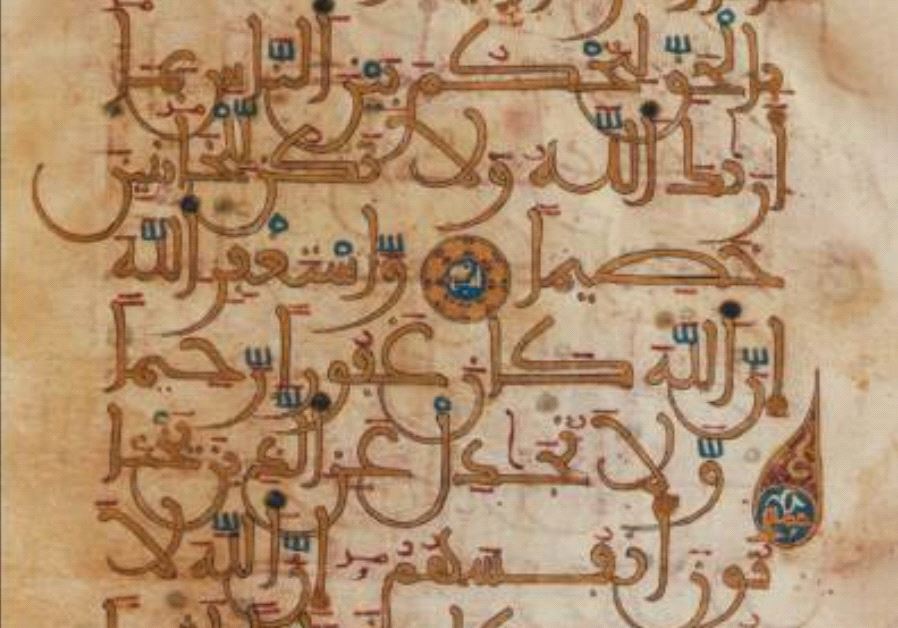 بالحق لتحكم بين الناس بما
أريك الله ولا تكن للخائنين
خصيما واستغفر الله
إن الله كان غفورا رحيما
ولا تجٰدل عن الذين يختا
نون أنفسهم إن الله لا